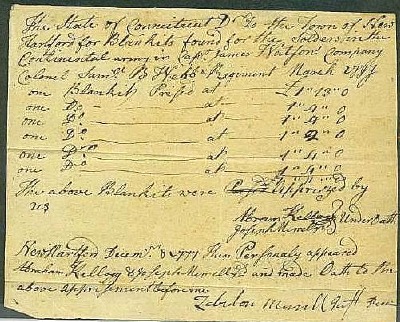 The State of Connecticut Dr. to the Town of New
Hartford for Blankits found for the Solders in the
Continental army in Capt. James Watsons Company
Colonel Saml. B Webbs Regiment March 1777
one Blankits Prised at £1"13"0
one Do. at 1"4"0
one Do. at 1"4"0
one Do. at 1"2"0
one Do. at 1"4"0
one Do. at 1"4"0
The above Blankits were apprized by
us
Abram Kellogg
Joseph Merrell under Oath
New Hartford Decem. 1777 then Personaly appeared
Abraham Kellogg & Joseph Merrell and made Oath to the
above apprisement before me
Zebulon Merrill Just Peace